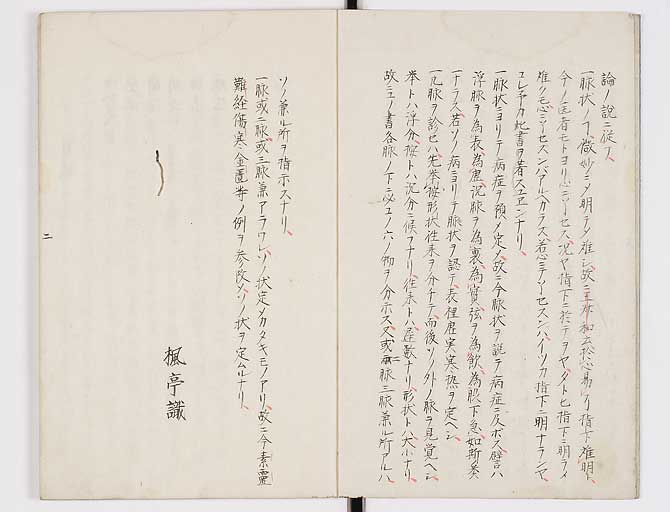 論ノ説ニ従フ、
一脉状ノ丁、微妙ニメ明ラメ難シ、故ニ王叔和云於心易シク指下難明、
今ノ医者モトヨリ心ニ了セス、况ヤ指下ニ於テヲヤ、タトヒ指下ニ明ラメ
難クモ心ニ了セスンハアルヘカラス、若心ニタモ了セスンハイツカ指下ニ明ナランヤ、
コレ予カ此書ヲ著スユヱンナリ、
一脉状ニヨリテ病症ヲ預メ定ム、故ニ今脉状ヲ説テ病症ニ及ボス、譬ハ
浮脉ヲ為表為虚、沉脉ヲ為裏為實、弦ヲ為飲、為脇下急如斯矣
ナラス、若ソノ病ニヨリテ脉状ヲ認テ、表裡虚実寒熱ヲ定ヘシ、
一凡脉ヲ診セハ、先挙按形状往来ヲ分チテ、而後ソノ外ノ脉ヲ見覚ヘシ、
挙トハ浮分、按トハ沉分ニ候フナリ、往来トハ、遅数ナリ、形状トハ大小ナリ、
故ニコノ書各脉ノ下ニ必コノ六ノ物ヲ分示ス、又或二脉三脉兼ル所アルハ、
ソノ兼ル所ヲ指示スナリ、
一脉或二脉、或三脉兼アラワレ、ソノ状定メカタキモノアリ、故ニ今素靈
難経傷寒金匱等ノ例ヲ参攷メ、ソノ状ヲ定ムルナリ、
楓亭識
二